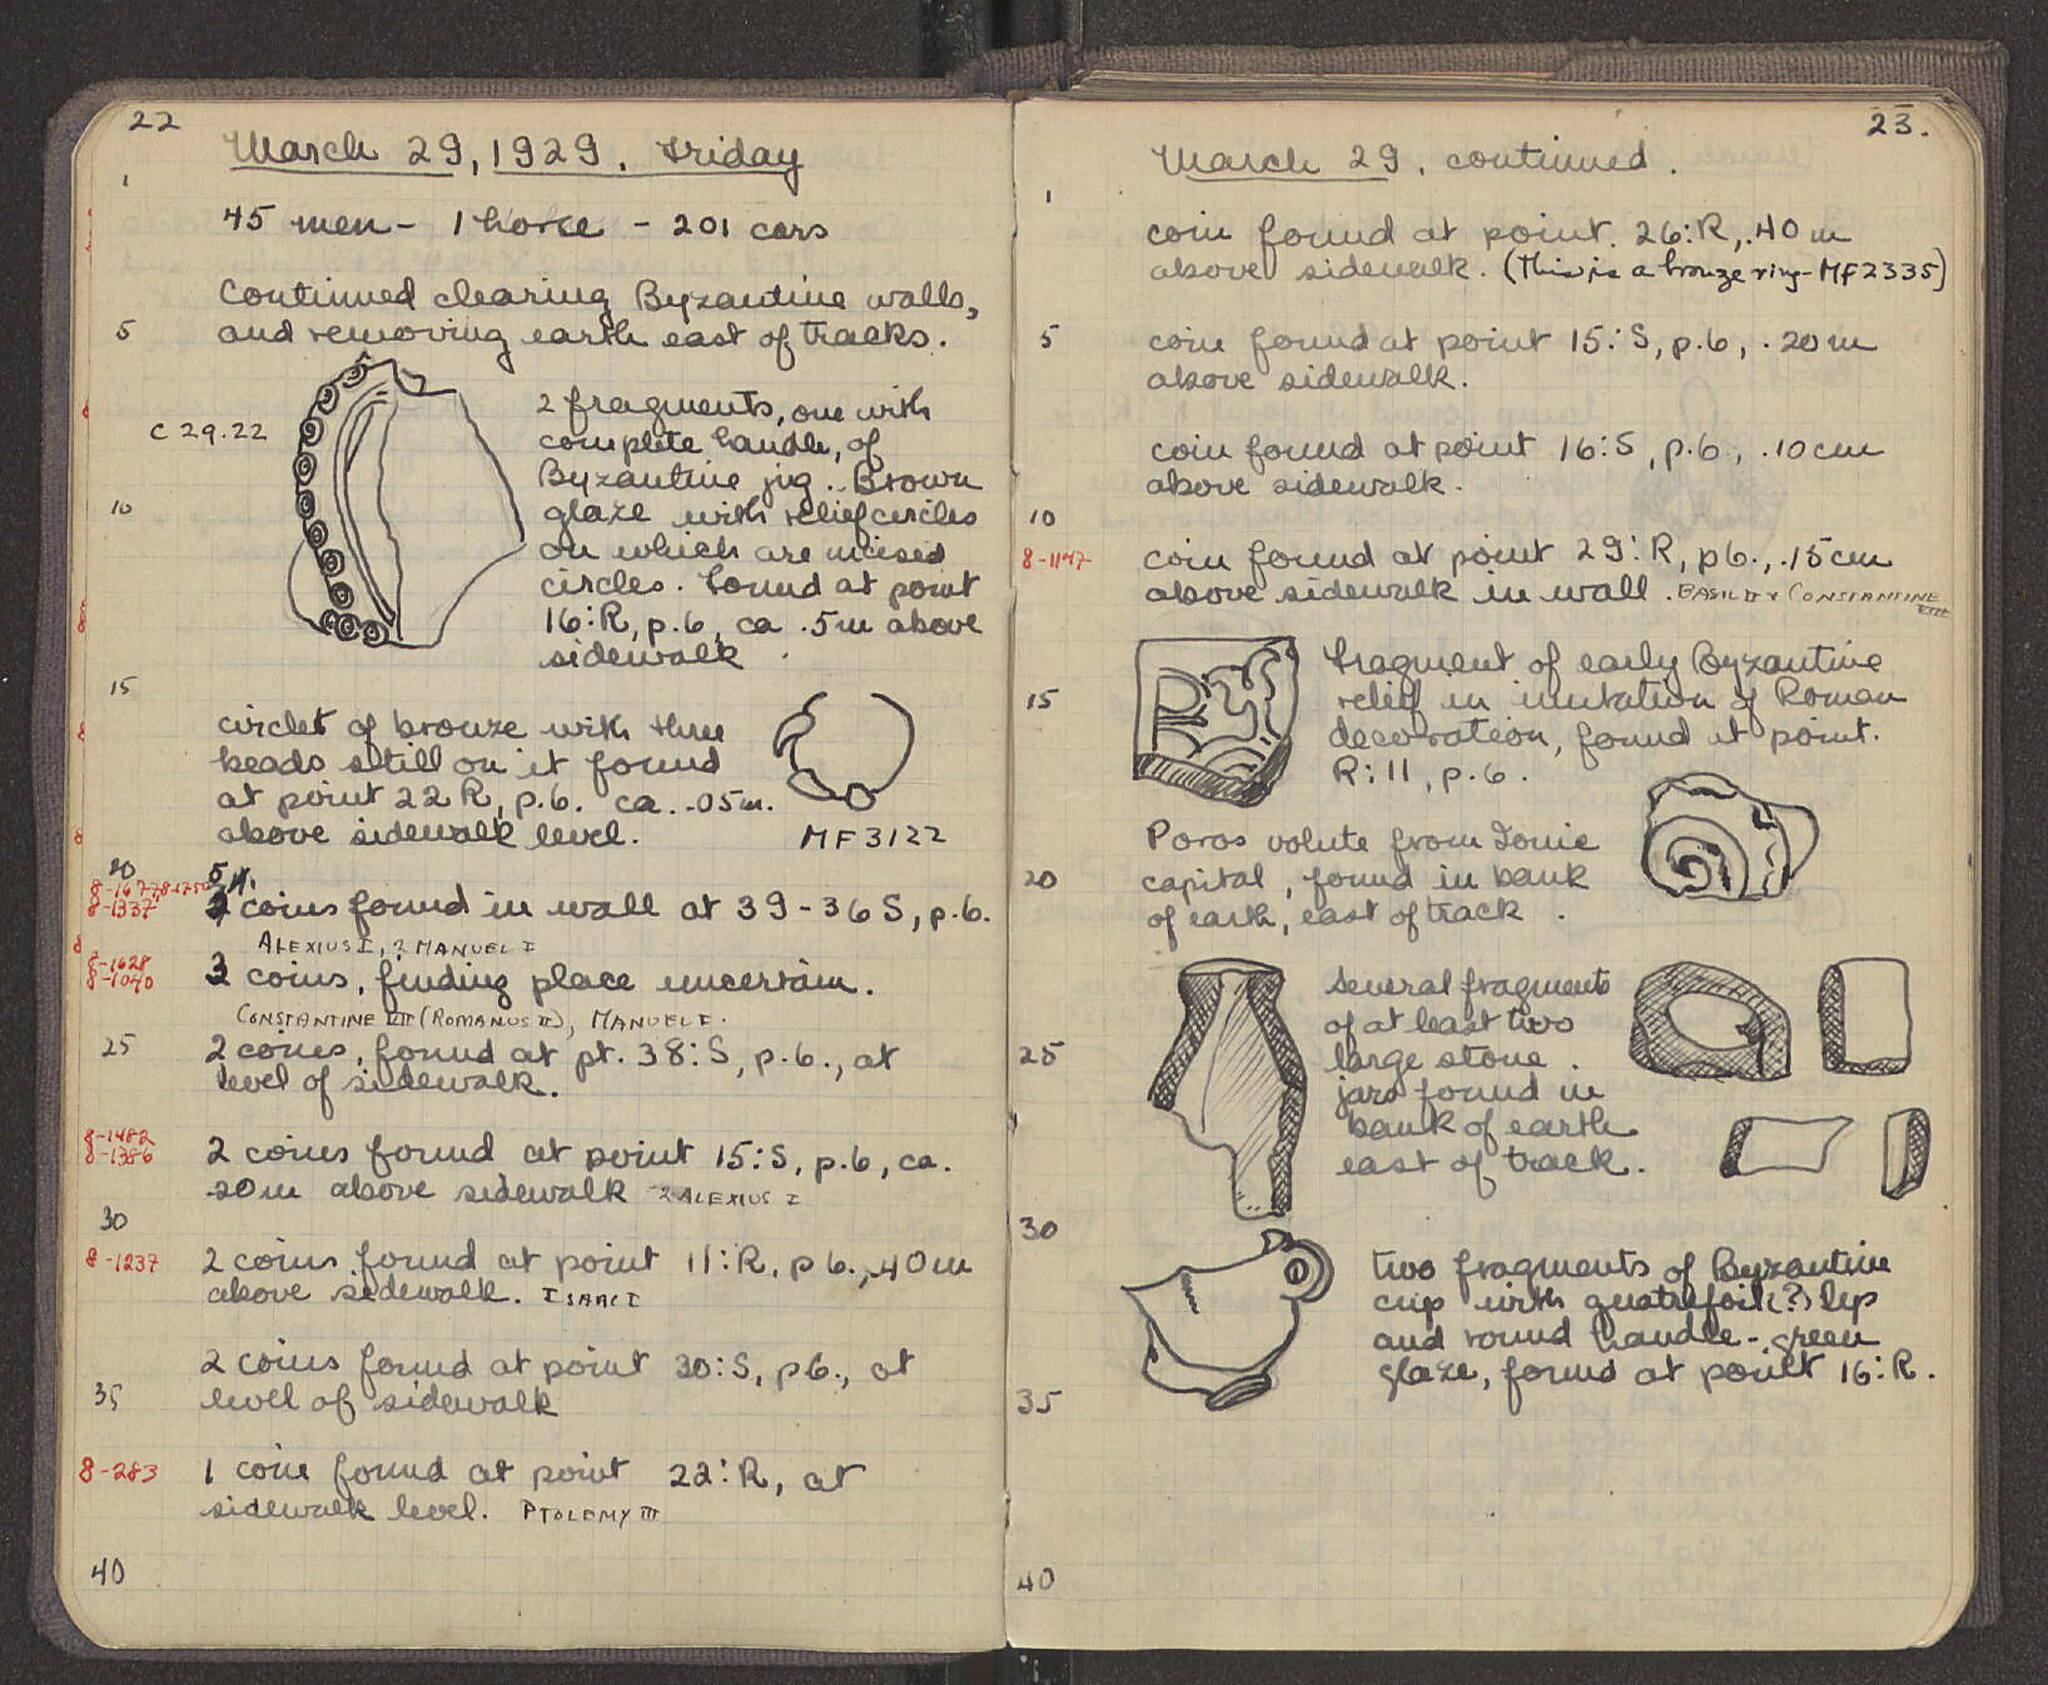 22
March 29, 1929. Friday
1
45 men - 1 horse - 201 cars
Continued clearing Byzantine walls,
5
and removing earth east of tracks.
C 29.22
2 fragments, one with
complete handle, of
Byzantine jug. Brown
10
glaze with relief circles
on which are incised
circles. Found at point
16:R, p.6, ca .5m above
sidewalk.
15
circlet of bronze with three
beads still on it found
at point 22 R, p.6. ca. .05m.
above sidewalk level.
MF 3122
20
8-1337
coins found in wall at 39-36 S, p.6.
ALEXIUS I, 2 MANUEL I
8-1628
8-1040
coins, finding place uncertain.
CONSTANTINE VII (ROMANUS II), MANUEL I.
25
2 coins, found at pt. 38:S, p.6., at
level of sidewalk.
8-1482
8-1386
2 coins found at point 15:S, p.6, ca.
.20m above sidewalk - 2 ALEXIUS I
30
8-1237
2 coins found at point 11:R, p6., .40m
above sidewalk. ISAAC I
2 coins found at point 30:S, p6., at
35
level of sidewalk
8-283
1 coin found at point 22:R, at
sidewalk level. PTOLEMY III
40
23.
March 29, continued.
1
coin found at point. 26:R, .40m
above sidewalk. (This is a bronze ring - MF2335)
5
coin found at point 15:S, p.6, .20m
above sidewalk.
coin found at point 16:S, p.6, .10cm
above sidewalk.
10
8-1147
coin found at point 29:R, p6., .15cm
above sidewalk in wall. BASIL II + CONSTANTINE VIII
fragment of early Byzantine
15
relief in imitation of Roman
decoration, found at point.
R:11, p.6.
Poros volute from Ionic
20
capital, found in bank
of earth, east of track.
Several fragments
of at least two
25
large stone
jars found in
bank of earth
east of track.
30
two fragments of Byzantine
cup with quatrefoil(?) lip
and round handle - green
glaze, found at point 16:R.
35
40